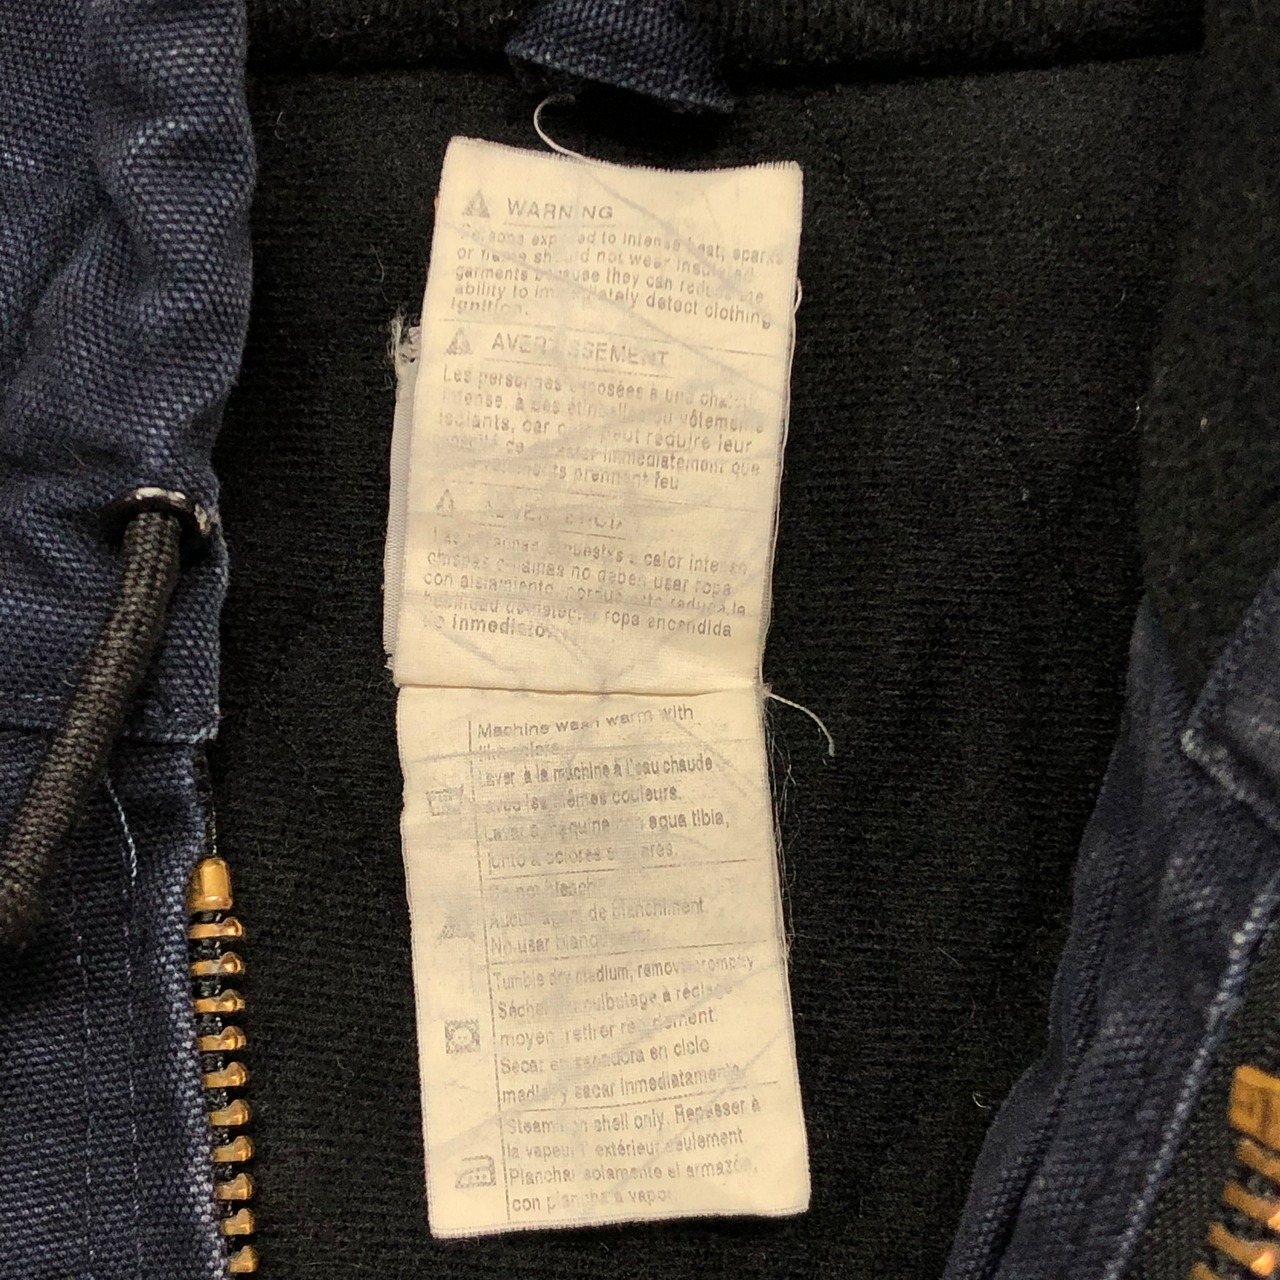 WARNING
Persons exposed to intense heat, sparks
or flame should not wear insulated
garments because they can reduce the
ability to immediately detect clothing
ignition.
AVERTISSEMENT
Les personnes exposées à une chaleur
intense, à des étincelles ou vêtements
isolants, car peut réduire leur
de immédiatement que
vêtements prennent feu
calor intenso
chispas o llamas no deben usar ropa
con aislamiento, porque esto reduce la
habilidad de detectar ropa encendida
de inmediato.
Machine wash warm with
like colors.
Laver à la machine à l'eau chaude
avec les mêmes couleurs.
Lavar a maquina con agua tibia,
junto a colores similares.
Do not bleach
Aucun agent de blanchiment
No usar blanqueador
Tumble dry medium, remove promptly
Sécher par culbutage à réglage
moyen, retirer rapidement.
Secar en secadora en ciclo
medio y sacar inmediatamente.
Steam iron shell only. Repasser à
la vapeur l'extérieur seulement
Planchar solamente el armazón,
con plancha a vapor.